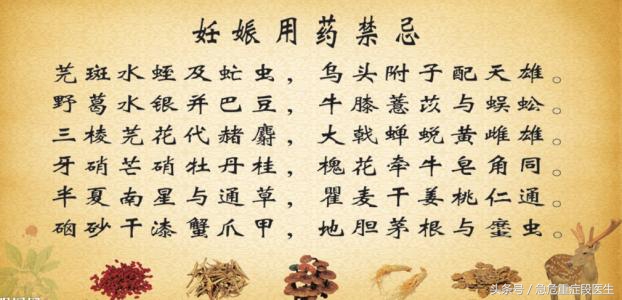 妊娠用药禁忌
芫斑水蛭及虻虫，乌头附子配天雄。
野葛水银并巴豆，牛膝薏苡与蜈蚣。
三棱芫花代赭麝，大戟蝉蜕黄雌雄。
牙硝芒硝牡丹桂，槐花牵牛皂角同。
半夏南星与通草，瞿麦干姜桃仁通。
硇砂干漆蟹爪甲，地胆茅根与䗪虫。
头条号／急危重症段医生